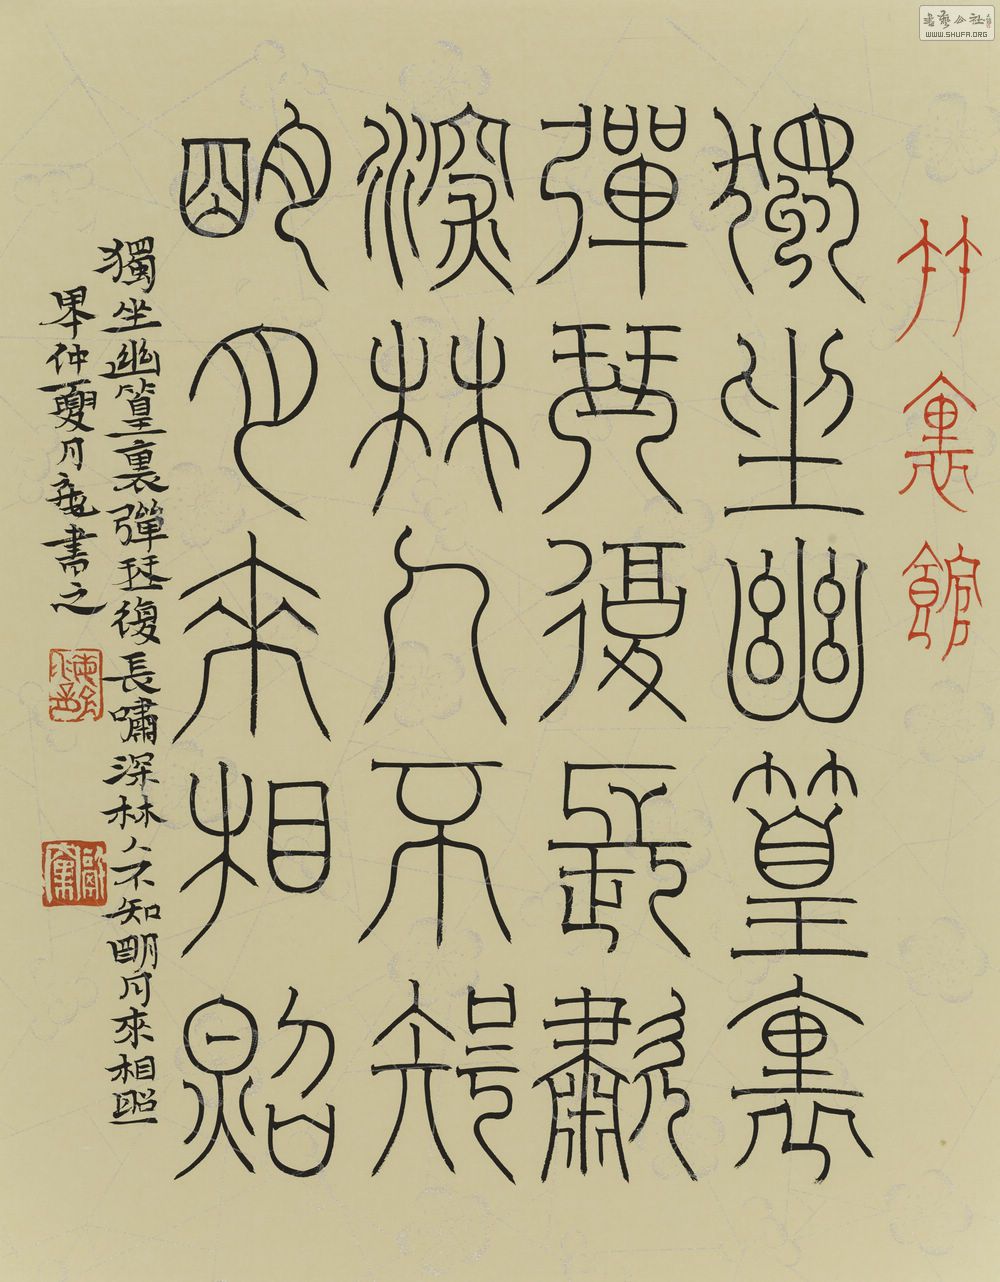 竹裏館
獨坐幽篁裏
彈琴復長歗
深林人不知
朙月來相照
獨坐幽篁裏彈琴復長嘯深林人不知朙月來相照
甲午仲夏月書之
書藝公社
WWW.SHUFA.ORG